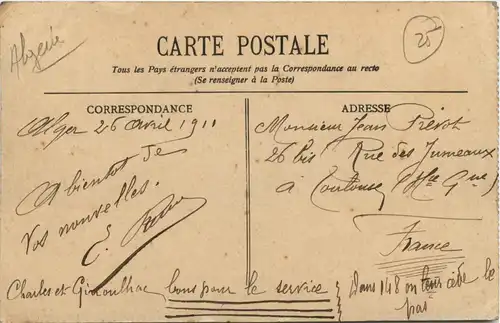 Algérie
25
CARTE POSTALE
Tous les Pays étrangers n'acceptent pas la Correspondance au recto
(Se renseigner à la Poste)
CORRESPONDANCE
Alger 26 avril 1911
A bientot de
Vos nouvelles.
C.
ADRESSE
Monsieur Jean Prévot
26 bis Rue des Jumeaux
à Toulouse (Hte Gne)
France
Charles et Ginoulhac bons pour le service
Dans 148 on cède le
pas